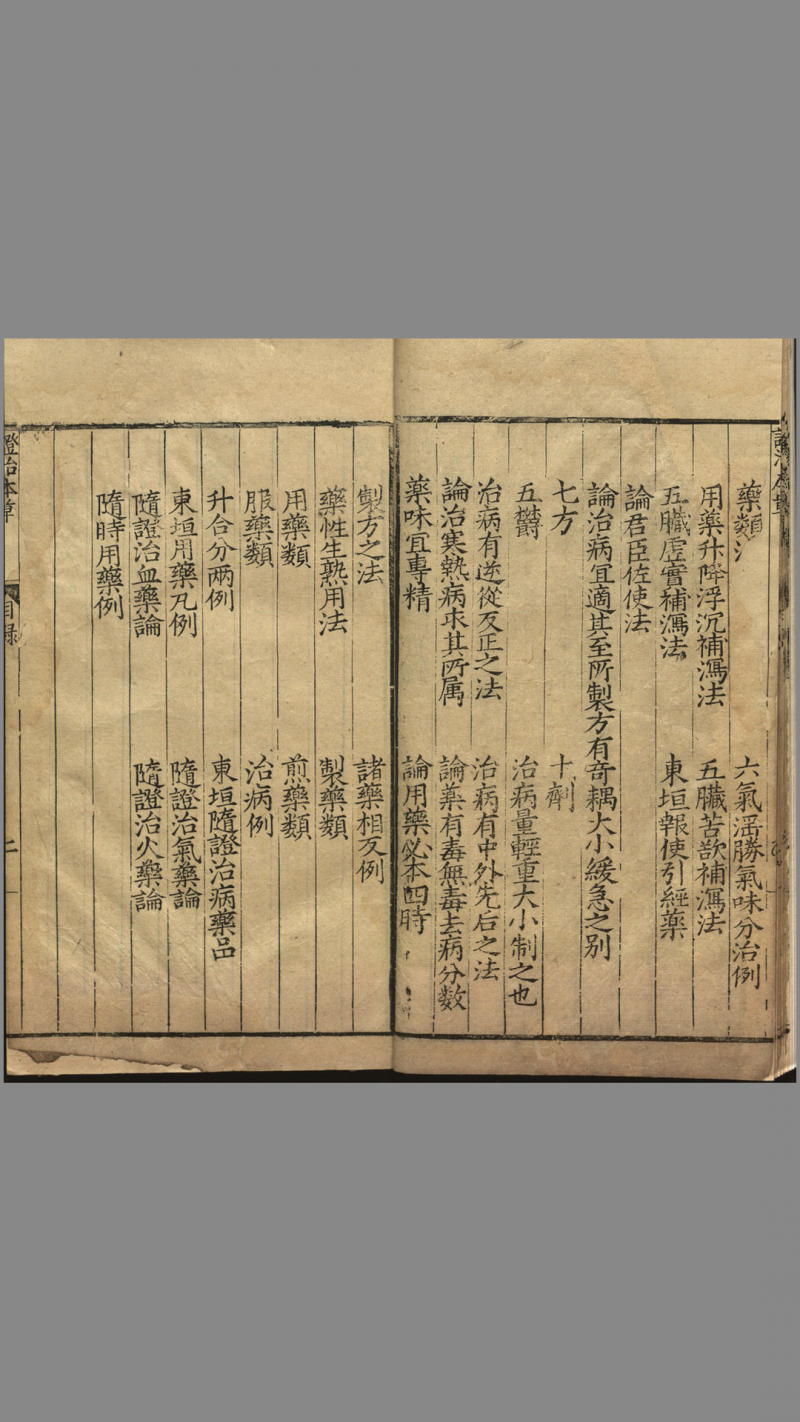 藥類氵
六氣滛勝氣味分治例
用藥升降浮沉補瀉法
五臟苦欲補瀉法
五臟虛實補瀉法
東垣報使引經藥
論君臣佐使法
論治病宜適其至所製方有奇耦大小緩急之别
七方
十劑
五欝
治病量輕重大小制之也
治病有逆從反正之法
治病有中外先后之法
論治寒熱病求其所属
論藥有毒無毒去病分数
藥味宜專精
論用藥必本四時
製方之法
諸藥相反例
藥性生熟用法
製藥類
用藥類
煎藥類
服藥類
治病例
升合分兩例
東垣隨證治病藥品
東垣用藥凡例
隨證治氣藥論
隨證治血藥論
隨證治火藥論
隨時用藥例
證治本草
目録
二